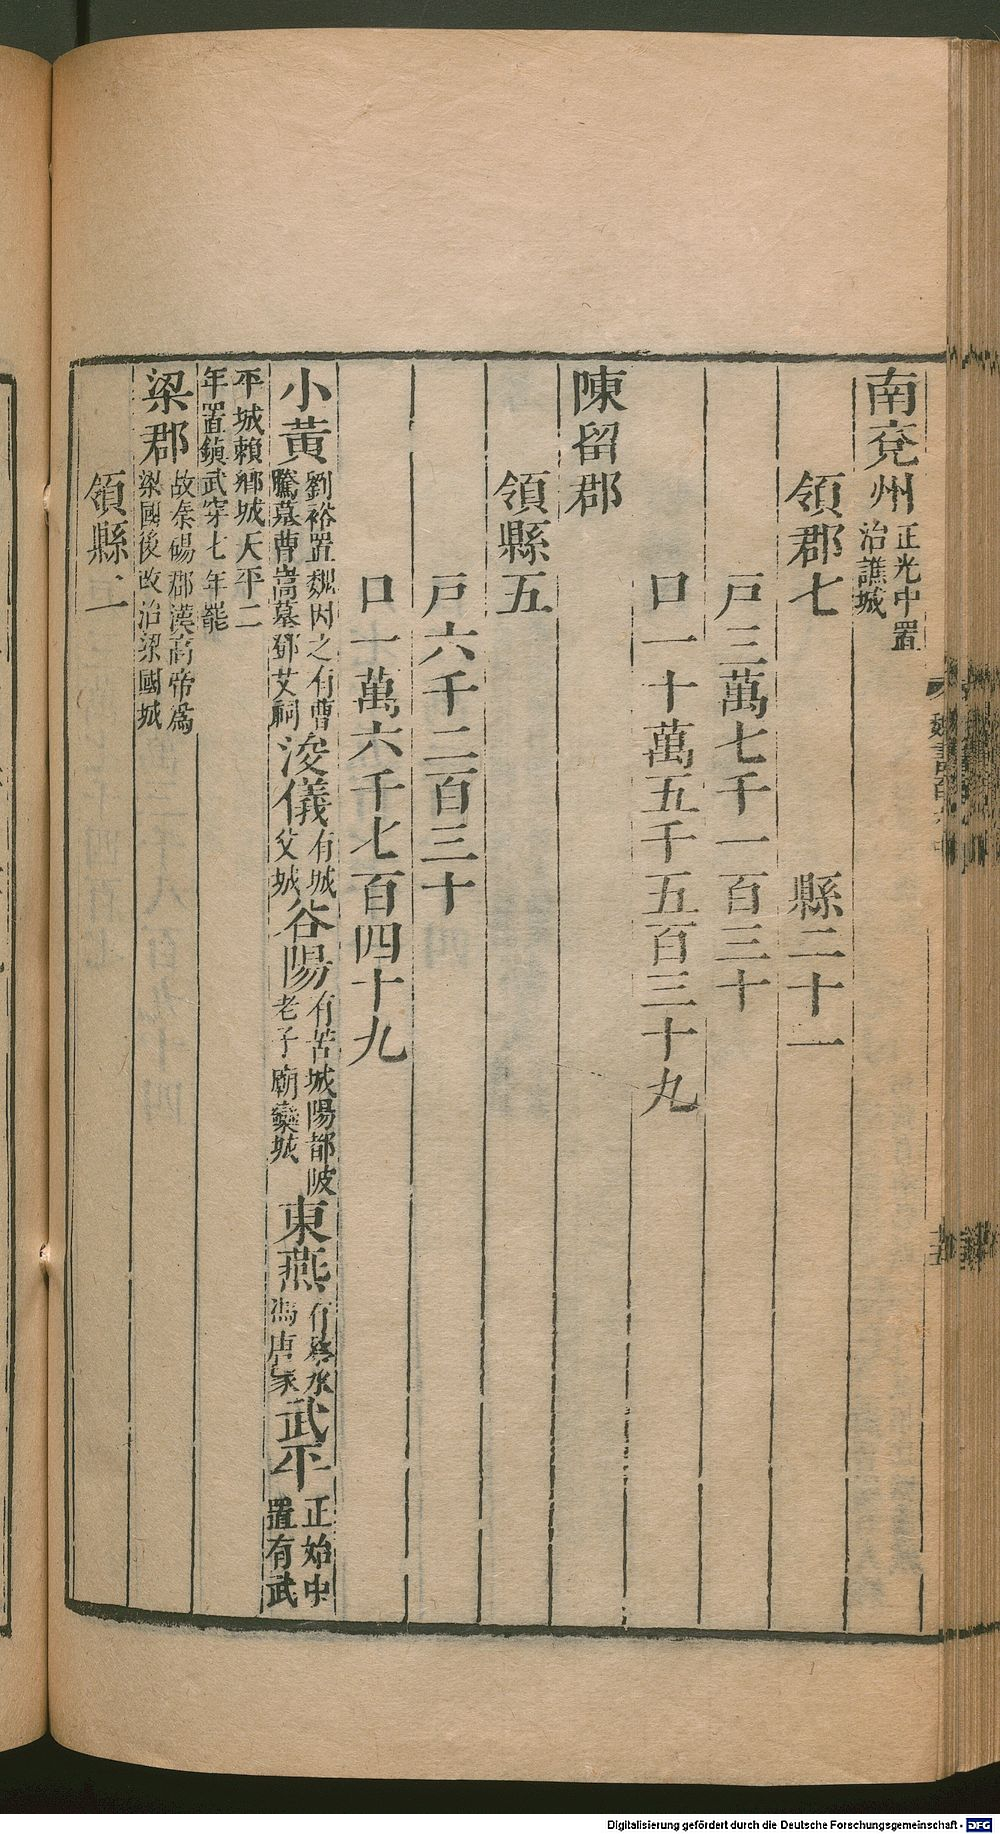 南兗州正光中置治譙城
領郡七 縣二十一
戸三萬七千一百三十
口一十萬五千五百三十九
陳留郡
領縣五
戸六千二百三十
口一萬六千七百四十九
小黃劉裕置魏因之有曹騰墓曹嵩墓鄧艾祠浚儀有城父城谷陽有苦城陽都陂老子廟欒城東燕有水馮唐冢武平正始中置有武
平城賴鄉城天平二年置鎮武穿七年罷
梁郡故秦碭郡漢高帝為梁國後改治梁國城
領縣二
魏書
Digitalisierung gefördert durch die Deutsche Forschungsgemeinschaft - DFG